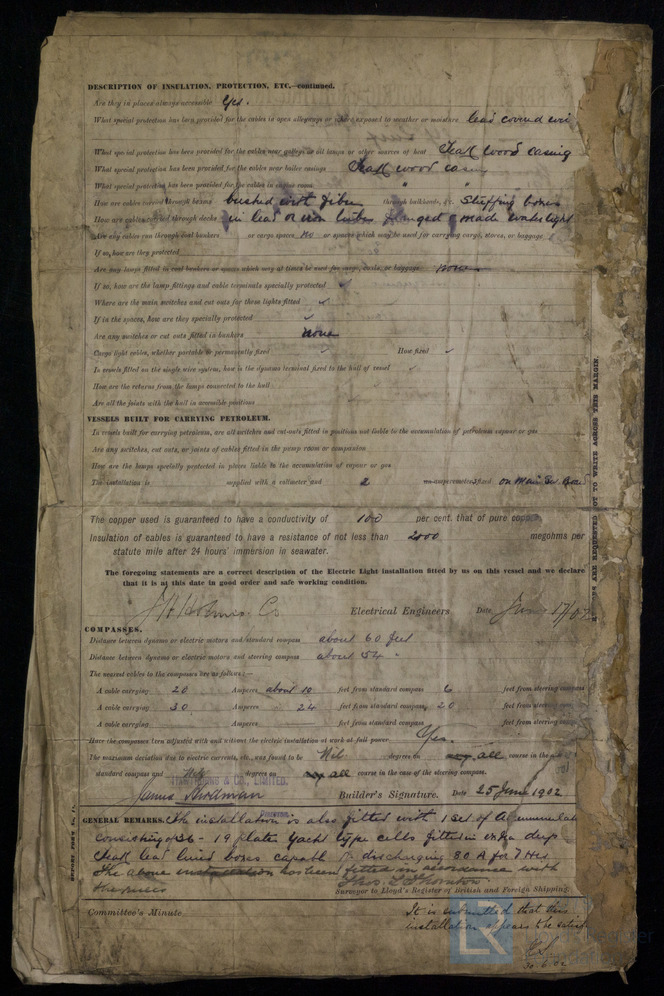 DESCRIPTION OF INSULATION, PROTECTION, ETC.—continued.
Are they in places always accessible Yes.
What special protection has been provided for the cables in open alleyways or where exposed to weather or moisture lead covered wire
What special protection has been provided for the cables near galleys or oil lamps or other sources of heat Teak wood casing
What special protection has been provided for the cables near boiler casings Teak wood casing
What special protection has been provided for the cables in engine room " "
How are cables carried through beams bushed with fibre through bulkheads, &c. Stuffing boxes
How are cables carried through decks in lead or iron tubes flanged & made watertight
Are any cables run through coal bunkers or cargo spaces No or spaces which may be used for carrying cargo, stores, or baggage
If so, how are they protected
Are any lamps fitted in coal bunkers or spaces which may at times be used for cargo, coals, or baggage none
If so, how are the lamp fittings and cable terminals specially protected ✓
Where are the main switches and cut outs for these lights fitted ✓
If in the spaces, how are they specially protected ✓
Are any switches or cut outs fitted in bunkers none
Cargo light cables, whether portable or permanently fixed ✓ How fixed ✓
In vessels fitted on the single wire system, how is the dynamo terminal fixed to the hull of vessel ✓
How are the returns from the lamps connected to the hull
Are all the joints with the hull in accessible positions
VESSELS BUILT FOR CARRYING PETROLEUM.
In vessels built for carrying petroleum, are all switches and cut-outs fitted in positions not liable to the accumulation of petroleum vapour or gas
Are any switches, cut outs, or joints of cables fitted in the pump room or companion
How are the lamps specially protected in places liable to the accumulation of vapour or gas
The installation is supplied with a voltmeter and 2 amperemeters fixed on Main Sw. Board
The copper used is guaranteed to have a conductivity of 100 per cent. that of pure copper.
Insulation of cables is guaranteed to have a resistance of not less than 2000 megohms per
statute mile after 24 hours' immersion in seawater.
The foregoing statements are a correct description of the Electric Light installation fitted by us on this vessel and we declare
that it is at this date in good order and safe working condition.
J H Holmes & Co Electrical Engineers Date June 17/02
COMPASSES.
Distance between dynamo or electric motors and standard compass about 60 feet
Distance between dynamo or electric motors and steering compass about 54 "
The nearest cables to the compasses are as follows:—
A cable carrying 20 Amperes about 10 feet from standard compass 6 feet from steering compass
A cable carrying 30 Amperes " 24 feet from standard compass 20 feet from steering compass
A cable carrying Amperes feet from standard compass feet from steering
Have the compasses been adjusted with and without the electric installation at work at full power Yes.
The maximum deviation due to electric currents, etc., was found to be Nil degrees on any all course in the
standard compass and Nil degrees on any all course in the case of the steering compass.
& CO., LIMITED.
James Builder's Signature. Date 25 June 1902
GENERAL REMARKS. The installation is also fitted with 1 set of Accumulators
consisting of 36 - 19 plates Yacht type cells fitted in extra deep
Teak lead lined boxes capable of discharging 80 A for 7 Hrs
The above installation has been fitted in accordance with
the rules Thos. Thornton
Surveyor to Lloyd's Register of British and Foreign Shipping.
Committee's Minute
It is submitted that this
installation appears to be
30.6.02
NOT TO WRITE ACROSS THIS MARGIN.
LR